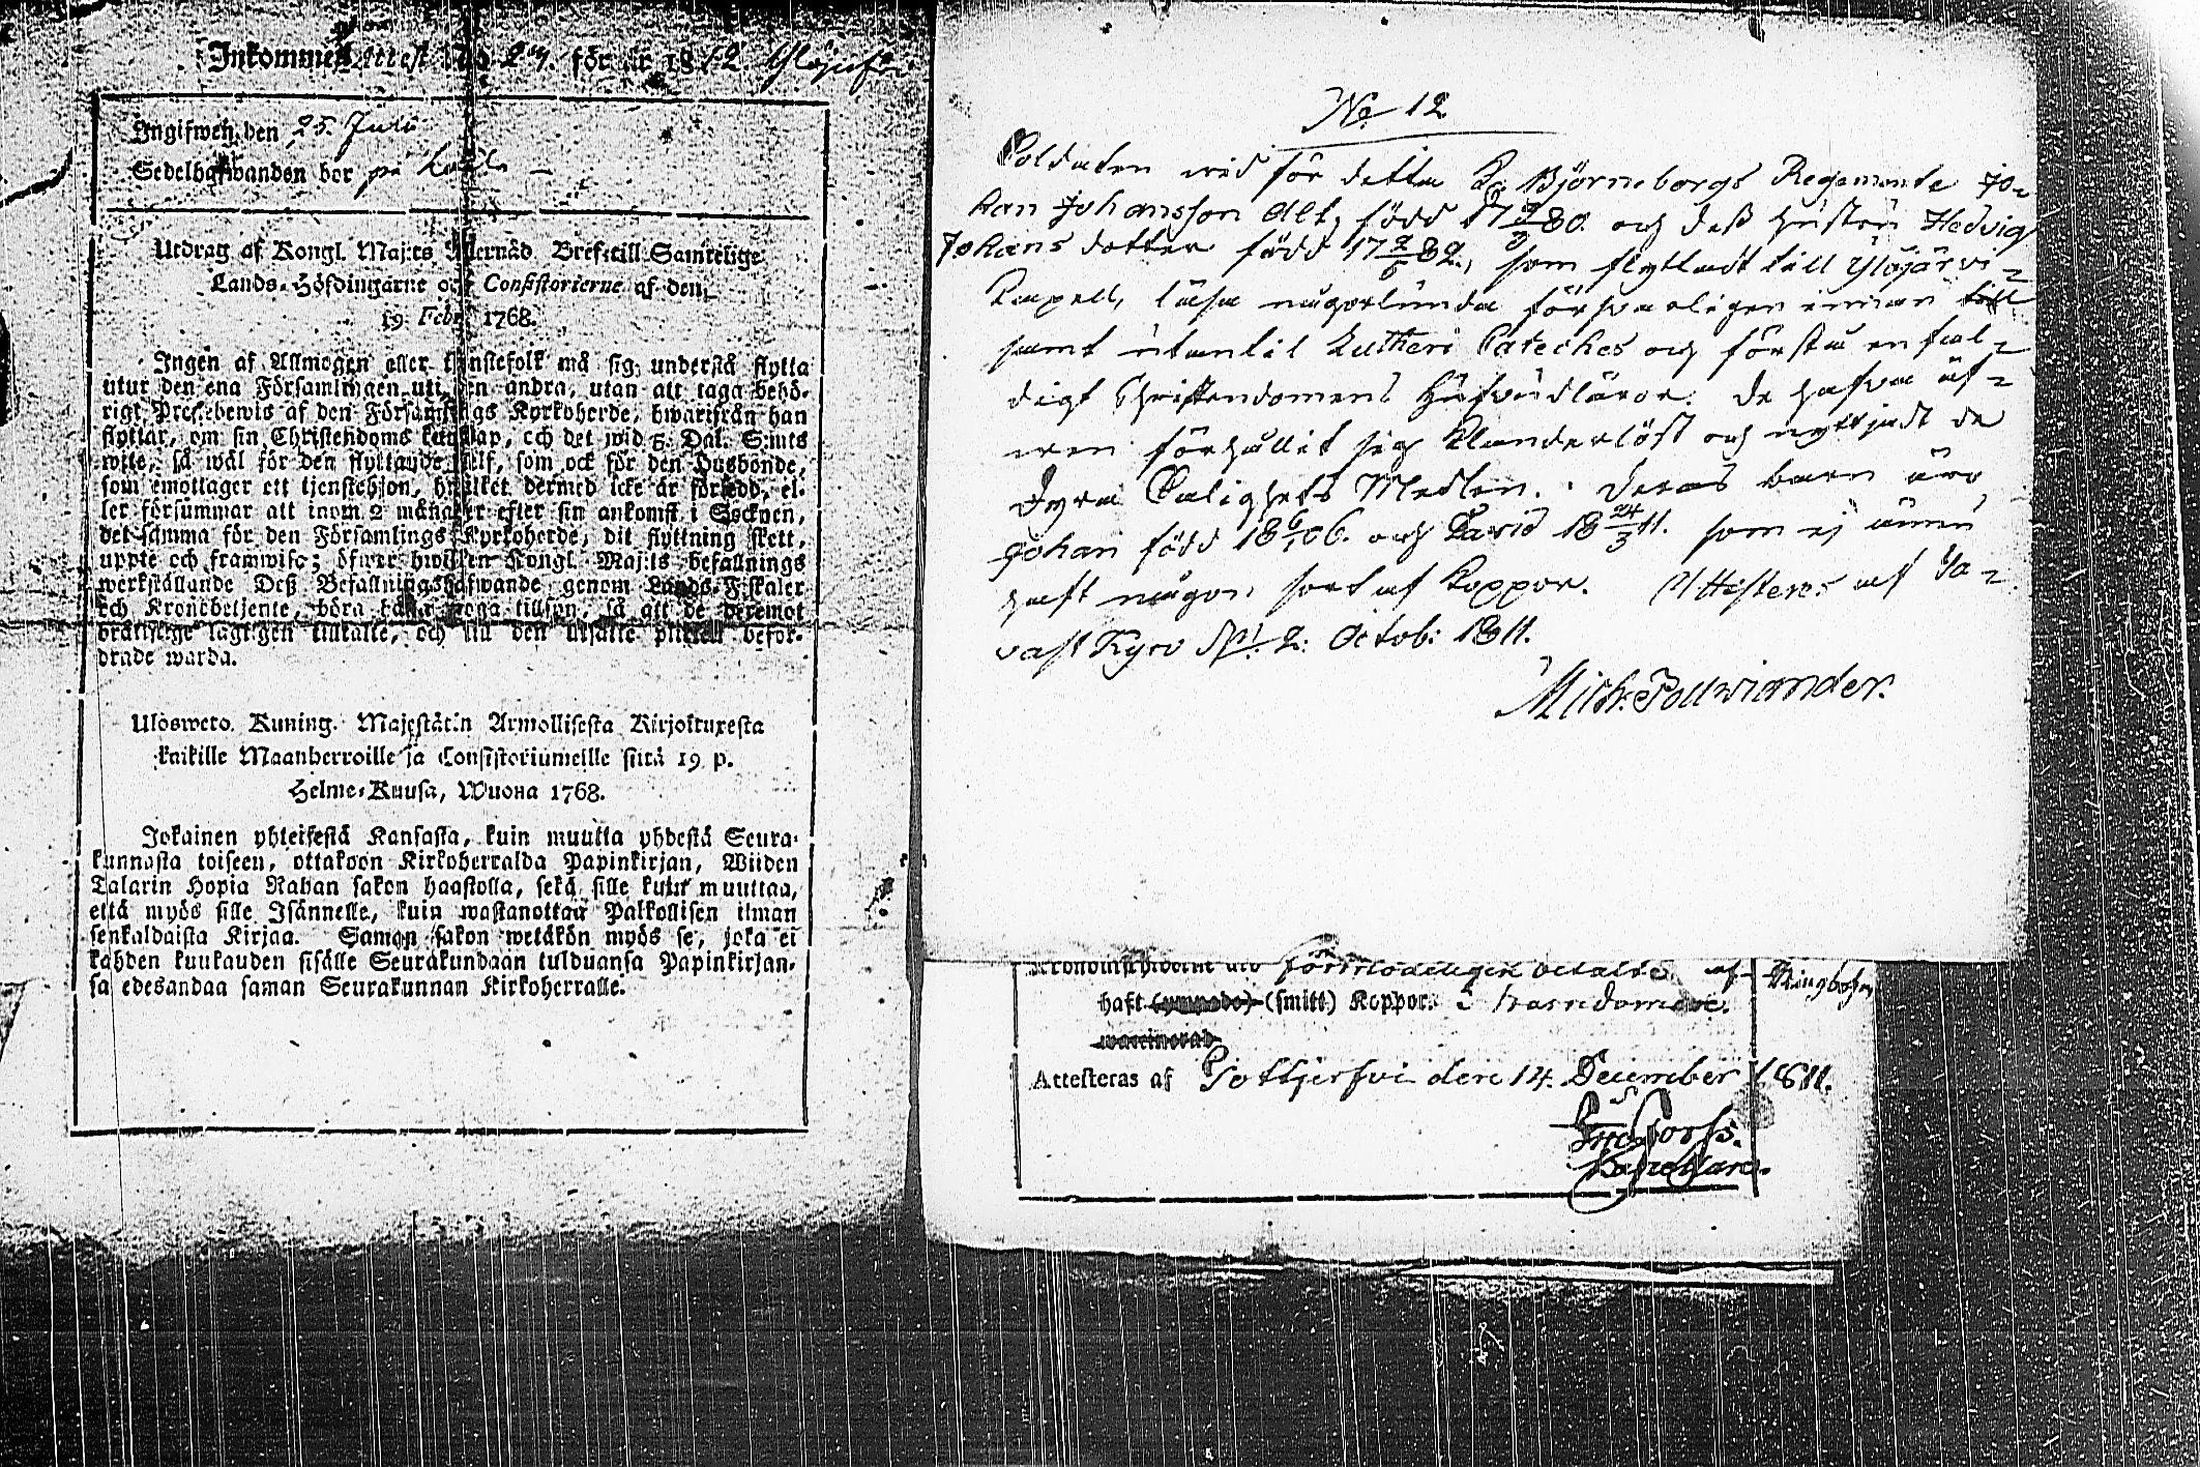 Inkommen Attest No 24. för år 1812 Ylöjerfvi
Ingifwen den 25. Juli
Sedelhafwanden bor på
Utdrag af Kongl. Maj:ts Nåd. Bref till Samtelige
Lands-Höfdingarne och Consistorierne af den
19. Febr. 1768.
Ingen af Allmogen eller tjenstefolk må sig understå flytta
utur den ena Församlingen uti den andra, utan att taga behö-
rigt Prestebewis af den Församlings Kyrkoherde, hwarifrån han
flyttar, om sin Christendoms kunskap, och det wid 5. Dal. S:mts
wite, så wäl för den flyttande sjelf, som ock för den Husbonde,
som emottager ett tjenstehjon, hwilket dermed icke är försedd, el-
ler försummar att inom 2 månader efter sin ankomst i Socknen,
det samma för den Församlings Kyrkoherde, dit flyttning skett,
uppte och framwisa; öfwer hwilken Kongl. Maj:ts befallnings
werkställande Deß Befallningshafwande genom Lands-Fiskaler
och Kronobetjente, böra hafwa noga tillsyn, så att de deremot
brottslige lagligen tilltalte, och till den utsatte plikten befor-
drade warda.
Ulosweto Kuning. Majestätin Armollisesta Kirjoituxesta
kaikille Maanherroille ja Consistoriumeille siitä 19 p.
Helme-Kuusa, Wuona 1768.
Jokainen yhteisestä Kansasta, kuin muutta yhdestä Seura-
kunnasta toiseen, ottakoon Kirkoherralda Papinkirjan, Wiiden
Talarin Hopia Rahan sakon haastolla, sekä sille kuin muuttaa,
että myös sille Isännelle, kuin wastanottaa Palkollisen ilman
senkaldaista Kirjaa. Saman sakon wetäkön myös se, joka ei
kahden kuukauden sisälle Seurakundaan tulduansa Papinkirjan-
sa edesandaa saman Seurakunnan Kirkoherralle.
No 12
Soldaten wid för detta K. Björneborgs Regemente Jo-
han Johansson Alt, född 17 /3 80. och deß hustru Hedvig
Johans dotter född 17 2/5 82., som flyttadt till Ylöjärvi
Kapell, läsa någorlunda försvarligen innan till
samt utantil Lutheri Cateches och förstå enfal-
digt Christendomens hufvudläror. De hafva äf-
wen förhållit sig klanderlöst och nyttjadt de
dyra Salighets Medlen. Deras barn äro
Johan född 18 6/1 06. och David 18 24/3 11. som ej ännu
haft någon sort af Koppor. Attesteras af Ta-
vast Kyro d. 2: Octob: 1811.
Mich: Pollwiander.
förmodeligen betalte af
haft (ympade) (smitt) Koppor. I barndomen.
waccinerad
Attesteras af Pottjerfvi den 14. December 1811.
Kapellan.